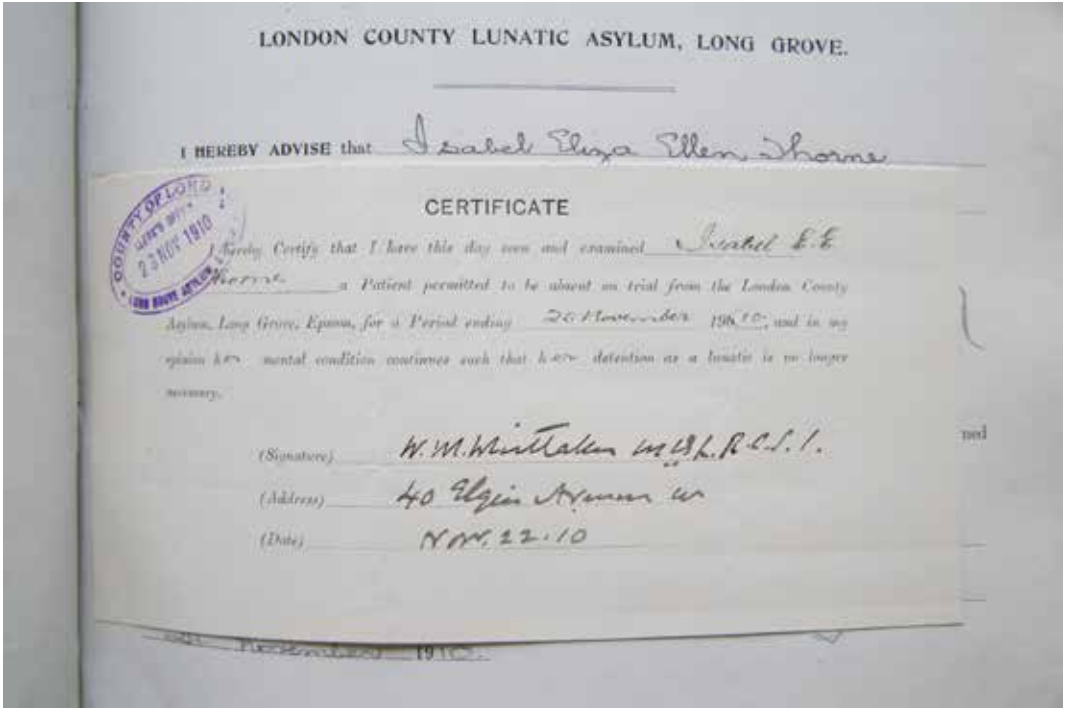 LONDON COUNTY LUNATIC ASYLUM, LONG GROVE.
I HEREBY ADVISE that Isabel Eliza Ellen Thorne
CERTIFICATE
COUNTY OF LOND
23 NOV 1910
LONG GROVE ASYLUM
I hereby Certify that I have this day seen and examined Isabel E. E.
Thorne a Patient permitted to be absent on trial from the London County
Asylum, Long Grove, Epsom, for a Period ending November 1910, and in my
opinion her mental condition continues such that her detention as a lunatic is no longer
necessary.
(Signature) W. M. Whittaker L.R.C.S.I.
(Address) 40 Elgin Avenue W
(Date) Nov. 22. 10
ned
November 1910.